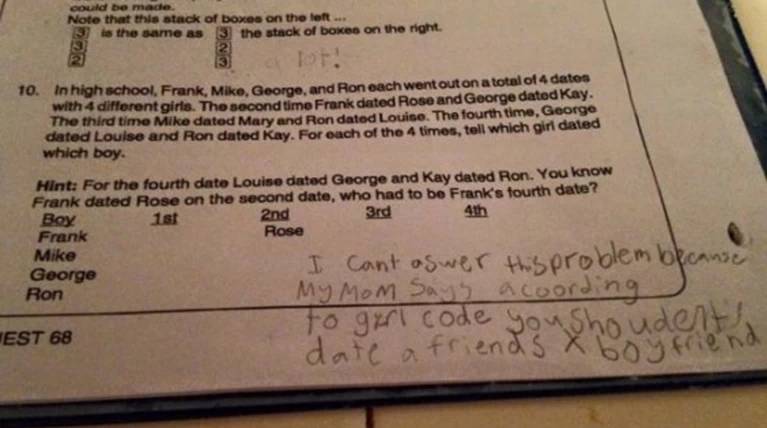 could be made.
Note that this stack of boxes on the left ...
3 is the same as 3 the stack of boxes on the right.
3 2
2 3
a lot!
10. In high school, Frank, Mike, George, and Ron each went out on a total of 4 dates
with 4 different girls. The second time Frank dated Rose and George dated Kay.
The third time Mike dated Mary and Ron dated Louise. The fourth time, George
dated Louise and Ron dated Kay. For each of the 4 times, tell which girl dated
which boy.
Hint: For the fourth date Louise dated George and Kay dated Ron. You know
Frank dated Rose on the second date, who had to be Frank's fourth date?
Boy 1st 2nd 3rd 4th
Frank Rose
Mike
George
Ron
I cant aswer this problem because
My Mom Says acoording
to girl code you shoudent
date a friends x boyfriend
EST 68